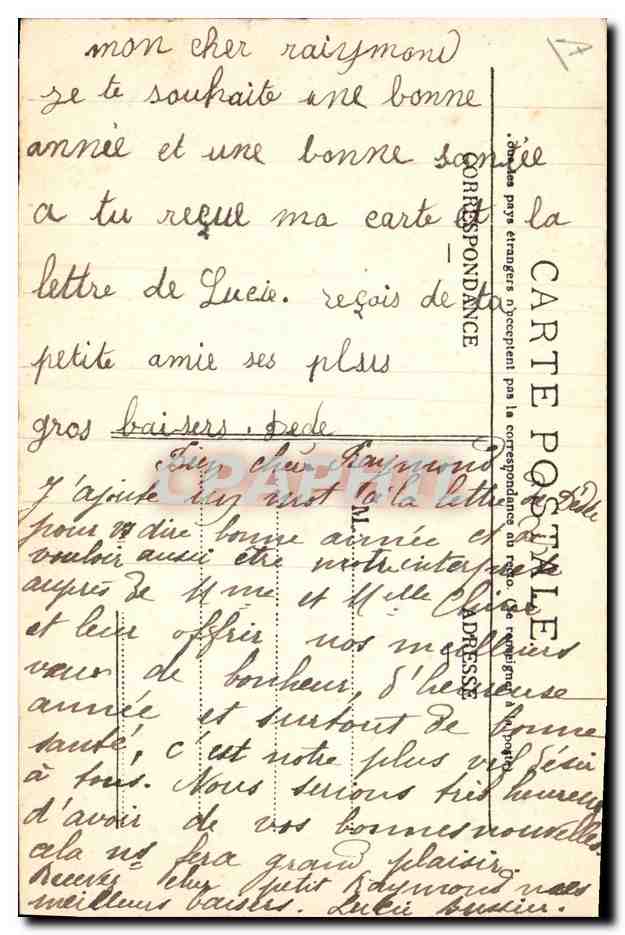 mon cher raiymond
je te souhaite une bonne
année et une bonne santée
a tu reçue ma carte et la
lettre de Lucie. reçois de ta
petite amie ses plus
gros baisers. Dede
Bien cher Raymond,
J'ajoute un mot à la lettre de Dédé
pour vs dire bonne année et de
vouloir aussi être notre interprète
auprès de Mme et Melle
et leur offrir nos meilliers
vœux de bonheur, d'heureuse
année et surtout de bonne
santé, c'est notre plus vif désir
à tous. Nous serions très heureux
d'avoir de vos bonnes nouvelles.
cela ns fera grand plaisir.
Recevez cher petit Raymond nos
meilleurs baisers. Lucie
CARTE POSTALE
Tous les pays étrangers n'acceptent pas la correspondance au recto. (Se renseigner à la poste)
CORRESPONDANCE
ADRESSE
M
CPARAMA